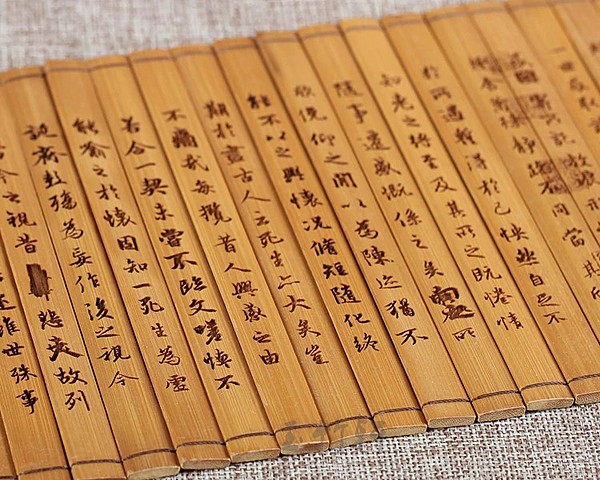 一世或取諸
因寄所託放浪形
趣舍萬殊靜躁不同當其
於所遇蹔得於己快然自足不
知老之將至及其所之既惓情
隨事遷感慨係之矣向之所
欣俛仰之間以為陳迹猶不
能不以之興懷況脩短隨化終
期於盡古人云死生亦大矣豈
不痛哉每攬昔人興感之由
若合一契未嘗不臨文嗟悼不
能喻之於懷固知一死生為虛
誕齊彭殤為妄作後之視今
今之視昔悲夫故列
述雖世殊事